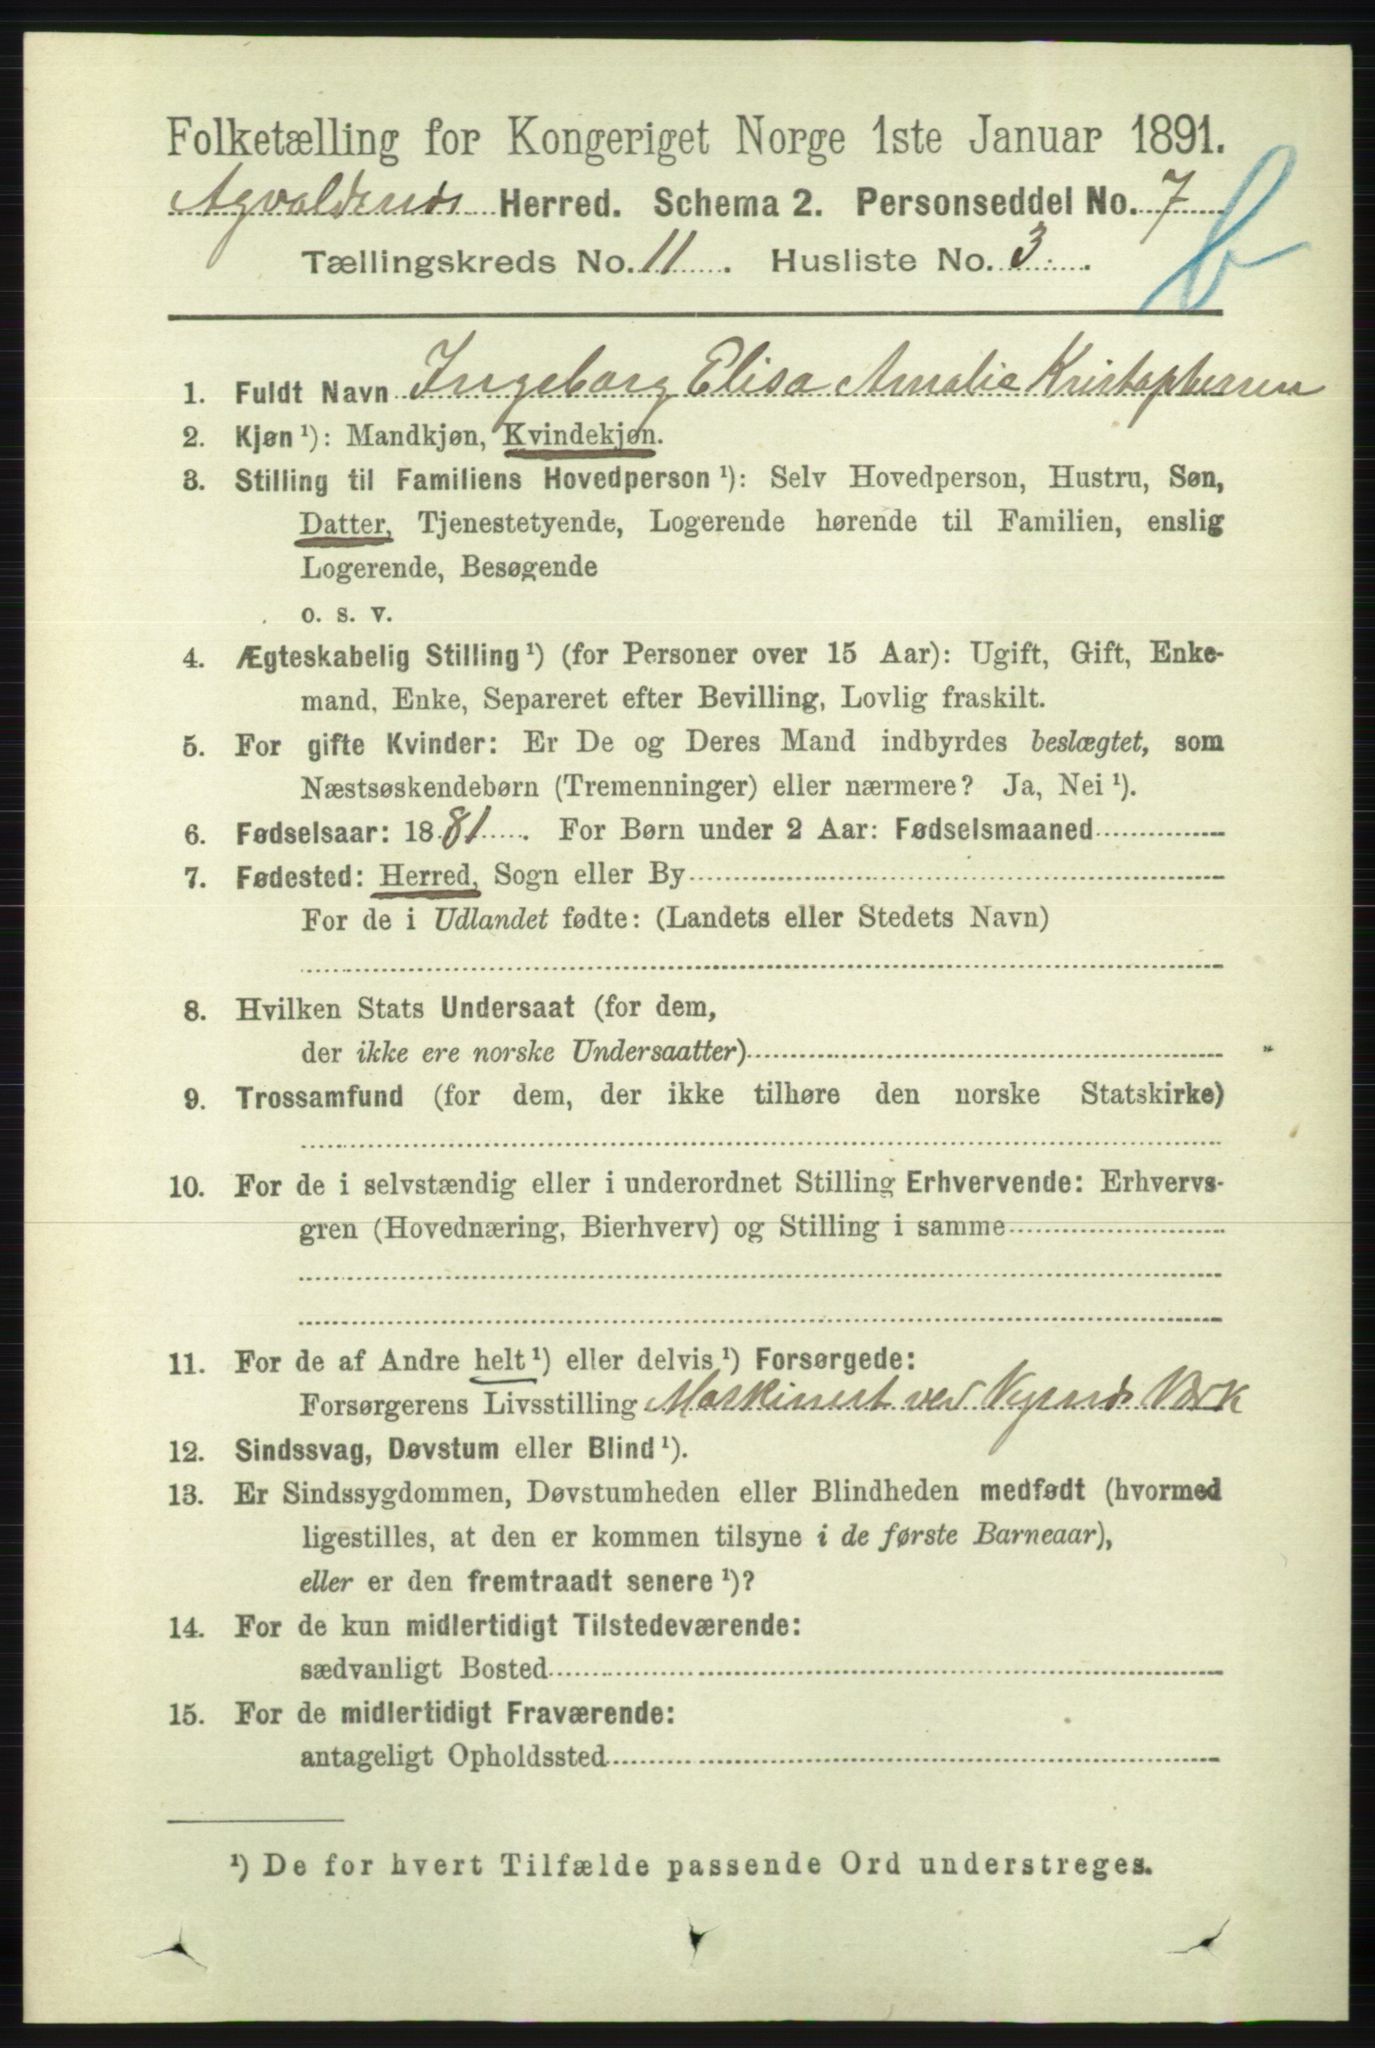 Folketælling for Kongeriget Norge 1ste Januar 1891.
Agvaldsnds Herred. Schema 2. Personseddel No. 7
Tællingskreds No. 11. Husliste No. 3.
b
1. Fuldt Navn Ingeborg Elisa Amalie Kristophersen
2. Kjøn ¹): Mandkjøn, Kvindekjøn.
3. Stilling til Familiens Hovedperson ¹): Selv Hovedperson, Hustru, Søn,
Datter, Tjenestetyende, Logerende hørende til Familien, enslig
Logerende, Besøgende
o. s. v.
4. Ægteskabelig Stilling ¹) (for Personer over 15 Aar): Ugift, Gift, Enke-
mand, Enke, Separeret efter Bevilling, Lovlig fraskilt.
5. For gifte Kvinder: Er De og Deres Mand indbyrdes beslægtet, som
Næstsøskendebørn (Tremenninger) eller nærmere? Ja, Nei ¹).
6. Fødselsaar: 1881. For Børn under 2 Aar: Fødselsmaaned
7. Fødested: Herred, Sogn eller By
For de i Udlandet fødte: (Landets eller Stedets Navn)
8. Hvilken Stats Undersaat (for dem,
der ikke ere norske Undersaatter)
9. Trossamfund (for dem, der ikke tilhøre den norske Statskirke)
10. For de i selvstændig eller i underordnet Stilling Erhvervende: Erhvervs-
gren (Hovednæring, Bierhverv) og Stilling i samme
11. For de af Andre helt ¹) eller delvis ¹) Forsørgede:
Forsørgerens Livsstilling Maskinist ved Vigsnæs Værk
12. Sindssvag, Døvstum eller Blind ¹).
13. Er Sindssygdommen, Døvstumheden eller Blindheden medfødt (hvormed
ligestilles, at den er kommen tilsyne i de første Barneaar),
eller er den fremtraadt senere ¹)?
14. For de kun midlertidigt Tilstedeværende:
sædvanligt Bosted
15. For de midlertidigt Fraværende:
antageligt Opholdssted
¹) De for hvert Tilfælde passende Ord understreges.